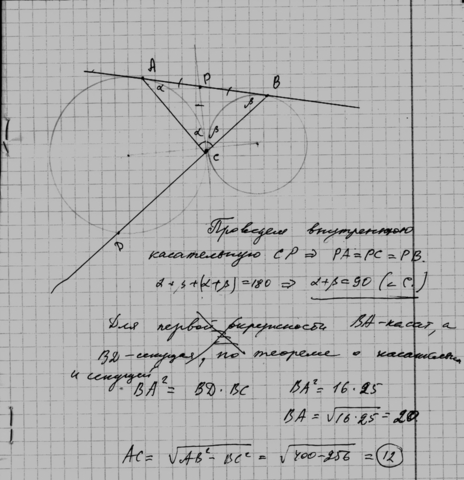 A P B
α β
α β
C
D
Проведем внутреннюю
касательную CP ⇒ PA = PC = PB.
α+β+(α+β)=180 ⇒ α+β=90 (∠C.)
Для первой окружности BA-касат, а
BD-секущая, по теореме о касательной
и секущей
BA² = BD·BC BA² = 16·25
BA = √16·25 = 20.
AC = √AB² - BC² = √400-256 = 12